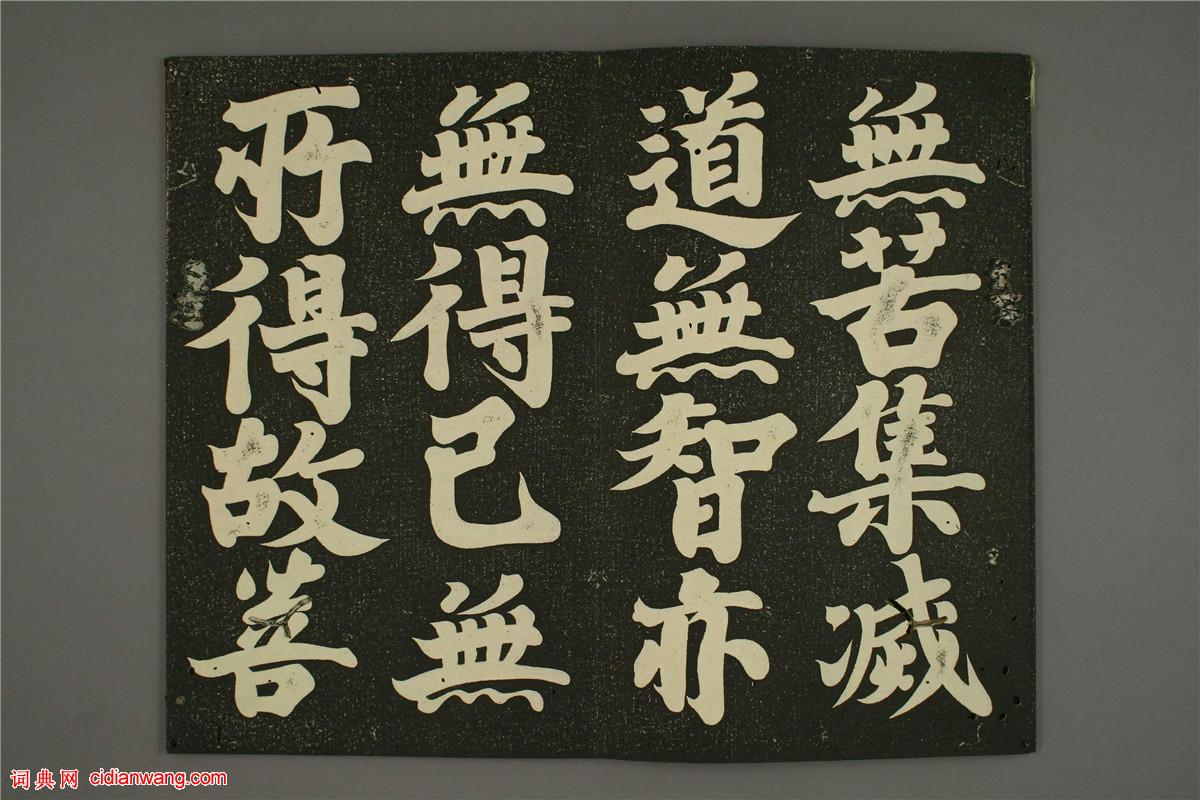 無苦集滅
道無智亦
無得已無
所得故菩
词典网 cidianwang.com